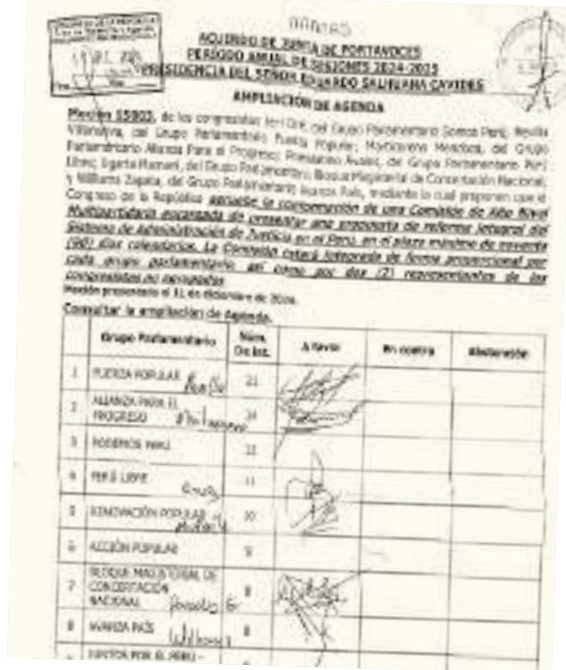 ACUERDO DE JUNTA DE PORTAVOCES
PERÍODO ANUAL DE SESIONES 2024-2025
PRESIDENCIA DEL SEÑOR EDUARDO SALHUANA CAVIDES
AMPLIACIÓN DE AGENDA
Moción 15803, de los congresistas del Grupo Parlamentario Somos Perú, Revilla
Villanueva, del Grupo Parlamentario Fuerza Popular; Marticorena Mendoza, del Grupo
Parlamentario Alianza Para el Progreso; del Grupo Parlamentario Perú
Libre; Ugarte Mamani, del Grupo Parlamentario Bloque Magisterial de Concertación Nacional;
y Williams Zapata, del Grupo Parlamentario Avanza País, mediante la cual proponen que el
Congreso de la República apruebe la conformación de una Comisión de Alto Nivel
Multipartidaria encargada de presentar una propuesta de reforma integral del
Sistema de Administración de Justicia en el Perú, en el plazo máximo de noventa
(90) días calendarios. La Comisión estará integrada de forma proporcional por
cada grupo parlamentario, así como por dos (2) representantes de los
congresistas no agrupados.
Moción presentada el 11 de diciembre de 2024.
Consultar la ampliación de Agenda.
Grupo Parlamentario Núm. De Int. A favor En contra Abstención
1 FUERZA POPULAR 21
2 ALIANZA PARA EL PROGRESO
3 PODEMOS PERÚ 12
4 PERÚ LIBRE 11
5 RENOVACIÓN POPULAR 10
6 ACCIÓN POPULAR 9
7 BLOQUE MAGISTERIAL DE CONCERTACIÓN NACIONAL 8
8 AVANZA PAÍS Williams 8
JUNTOS POR EL PERÚ -